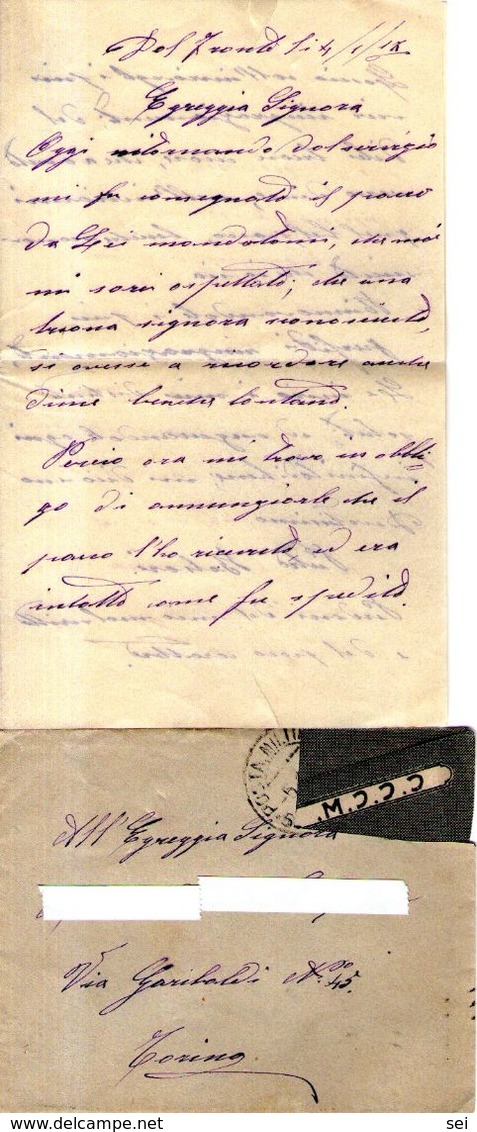 Dal Fronte li 4/1/18
Egreggia Signora
Oggi ritornando dal servizio
mi fu consegnato il pacco
da Lei mandatomi, che mai
mi sarei aspettato; che una
buona signora sconosciuta,
si avesse a ricordare anche
di me benche lontano.
Percio ora mi trovo in obbli-
go di annunziarle che il
pacco l'ho ricevuto ed era
intatto come fu spedito.
POSTA MILIT
5
All' Egreggia Signora
Via Garibaldi No 45.
Torino
sei